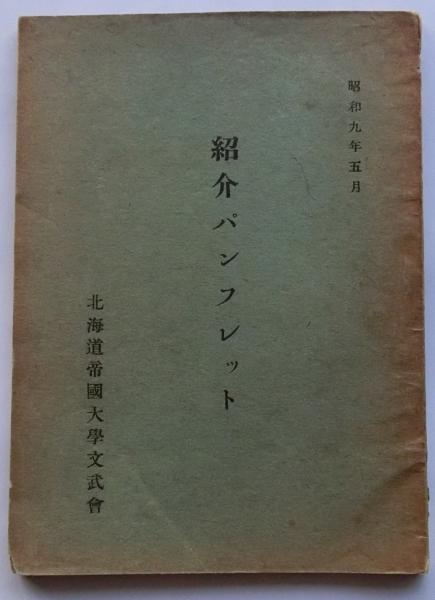 昭和九年五月
紹介パンフレット
北海道帝國大學文武會